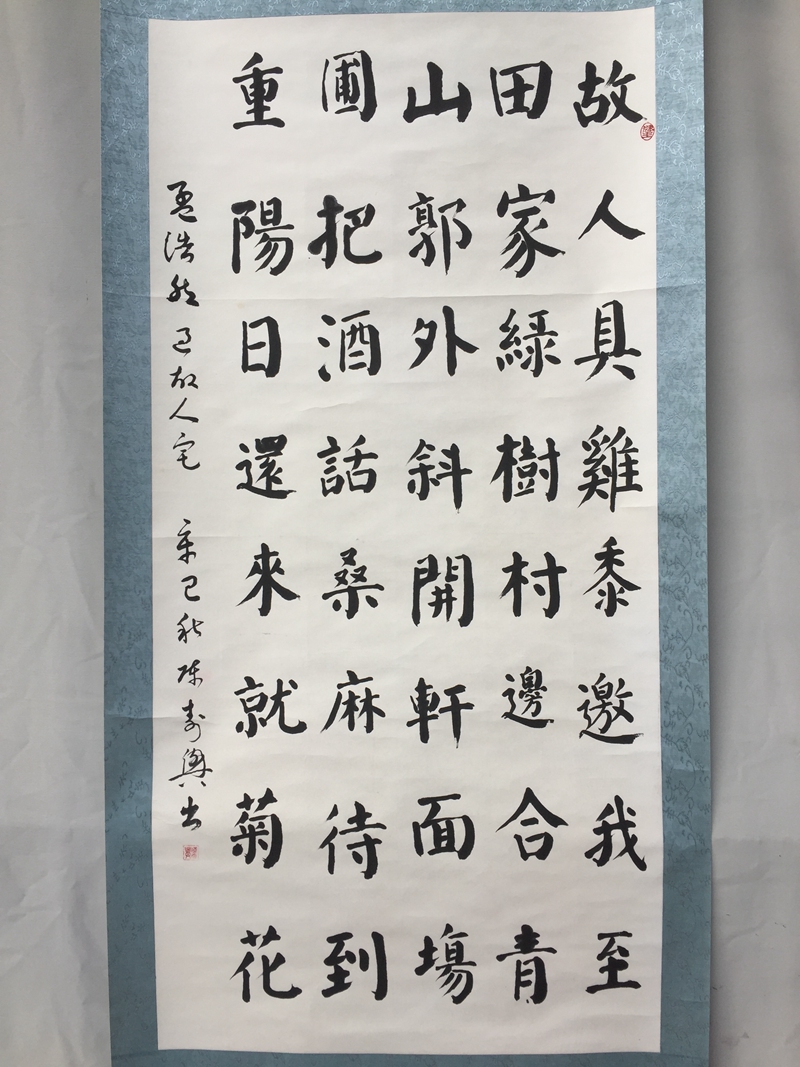 故人具雞黍邀我至
田家綠樹村邊合青
山郭外斜開軒面場
圃把酒話桑麻待到
重陽日還來就菊花
孟浩然過故人宅 辛巳秋陳壽興書